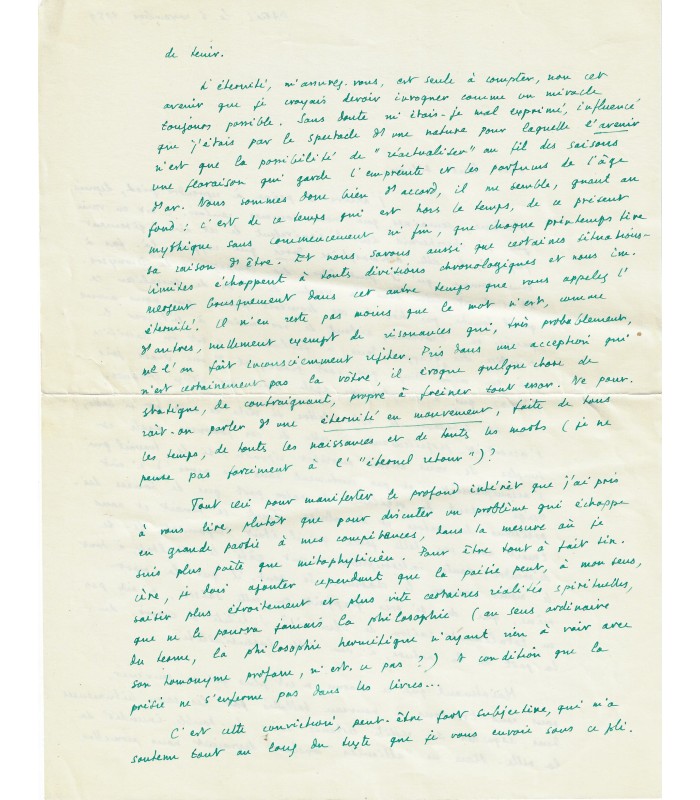 de tenir.
L'éternité, m'assurez-vous, est seule à compter, non cet
avenir que je croyais devoir invoquer comme un miracle
toujours possible. Sans doute m'étais-je mal exprimé, influencé
que j'étais par le spectacle d'une nature pour laquelle l'avenir
n'est que la possibilité de "réactualiser" au fil des saisons
une floraison qui garde l'empreinte et les parfums de l'âge
d'or. Nous sommes donc bien d'accord, il me semble, quant au
fond : c'est de ce temps qui est hors le temps, de ce présent
mythique sans commencement ni fin, que chaque printemps tire
sa raison d'être. Et nous savons aussi que certaines situations-
limites échappent à toutes divisions chronologiques et nous im-
mergent brusquement dans cet autre temps que vous appelez l'
éternité. Il n'en reste pas moins que le mot n'est, comme
d'autres, nullement exempt de résonances qui, très probablement,
me l'on fait inconsciemment rejeter. Pris dans une acception qui
n'est certainement pas la vôtre, il évoque quelque chose de
statique, de contraignant, propre à freiner tout essor. Ne pour-
rait-on parler d'une éternité en mouvement, faite de tous
les temps, de toutes les naissances et de toutes les morts (je ne
pense pas forcément à l'"éternel retour")?
Tout ceci pour manifester le profond intérêt que j'ai pris
à vous lire, plutôt que pour discuter un problème qui échappe
en grande partie à mes compétences, dans la mesure où je
suis plus poète que métaphysicien. Pour être tout à fait sin-
cère, je dois ajouter cependant que la poésie peut, à mon sens,
saisir plus étroitement et plus vite certaines réalités spirituelles,
que ne le pourra jamais la philosophie (au sens ordinaire
du terme, la philosophie hermétique n'ayant rien à voir avec
son homonyme profane, n'est-ce pas ?) à condition que la
poésie ne s'enferme pas dans les livres...
C'est cette conviction, peut-être fort subjective, qui m'a
soutenu tout au long du texte que je vous envoie sous ce pli.